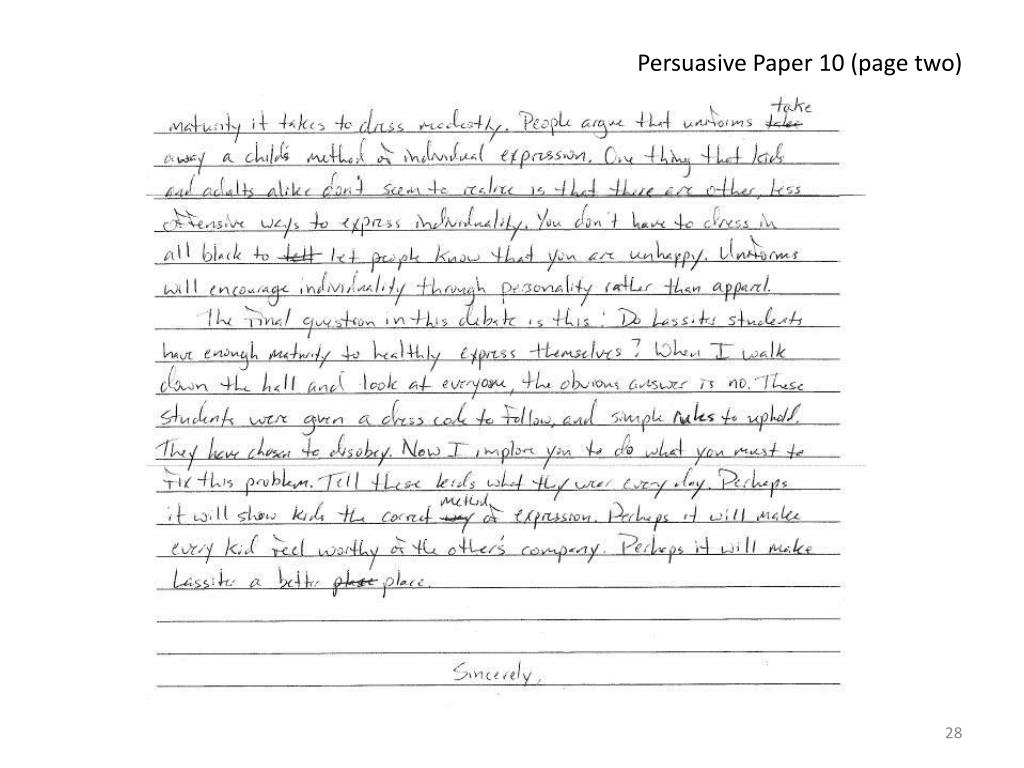 Persuasive Paper 10 (page two)
take
maturity it takes to dress modestly. People argue that uniforms
away a child's method of individual expression. One thing that kids
and adults alike don't seem to realize is that there are other, less
offensive ways to express individuality. You don't have to dress in
all black to tell let people know that you are unhappy. Uniforms
will encourage individuality through personality rather than apparel.
The final question in this debate is this: Do Lassiter students
have enough maturity to healthly express themselves? When I walk
down the hall and look at everyone, the obvious answer is no. These
students were given a dress code to follow, and simple rules to uphold.
They have chosen to disobey. Now I implore you to do what you must to
fix this problem. Tell these kids what they wear every day. Perhaps
method
it will show kids the correct way of expression. Perhaps it will make
every kid feel worthy of the other's company. Perhaps it will make
Lassiter a better place place.
Sincerely,
28